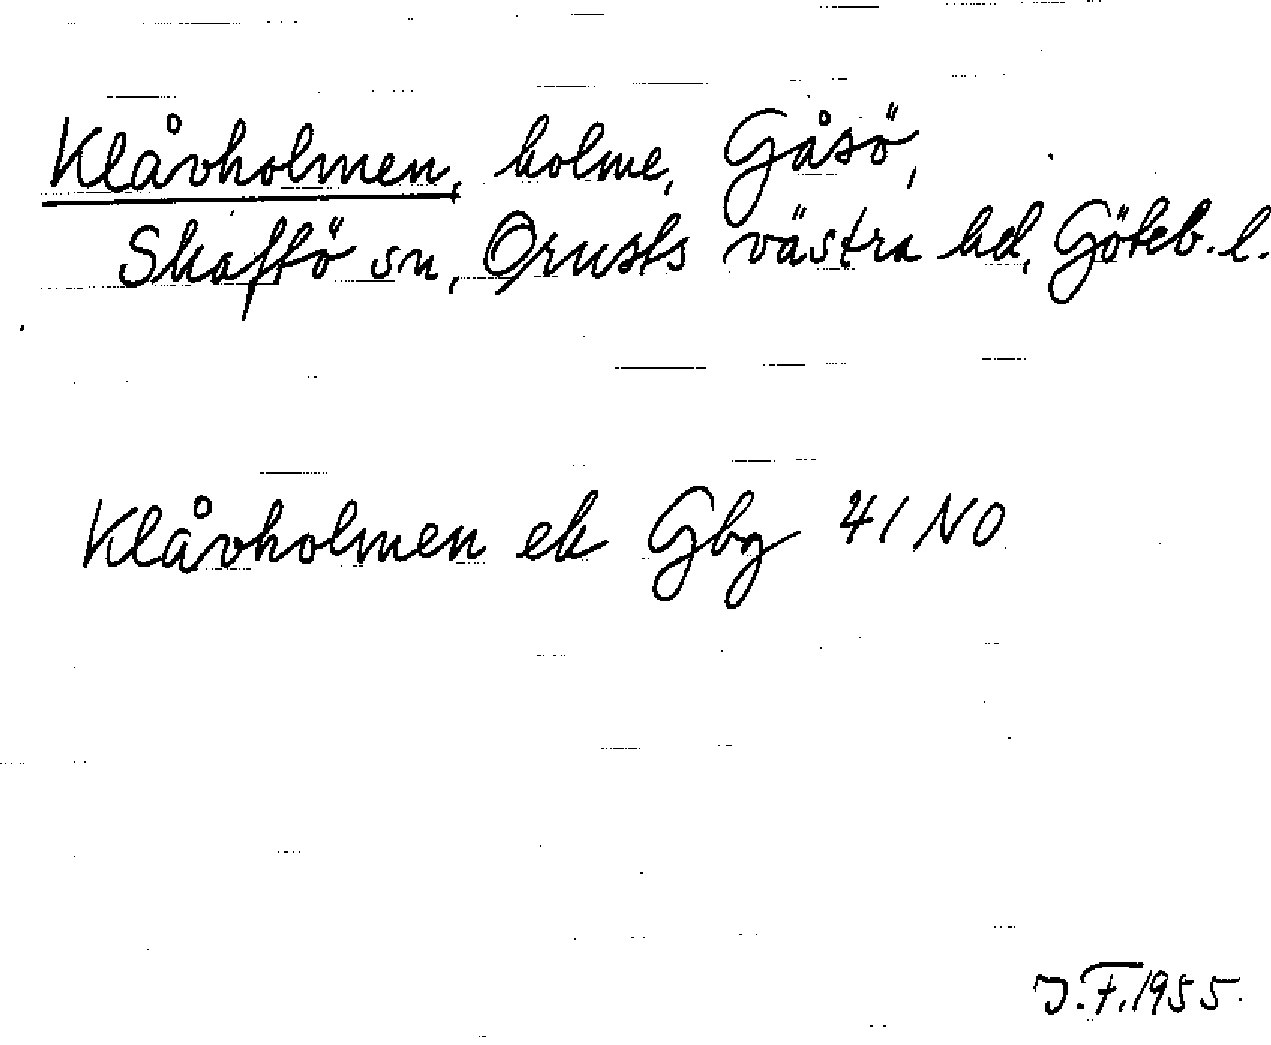 Klåvholmen, holme, Gåsö,
Skaftö sn, Orusts västra hd, Göteb. l.
Klåvholmen ek Gbg 41 NO
J.F. 1955.